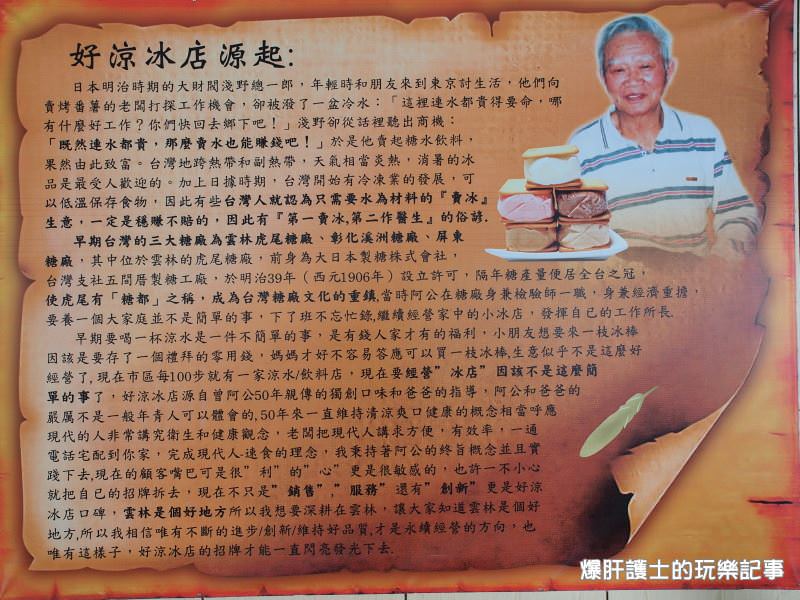 好涼冰店源起:
日本明治時期的大財閥淺野總一郎，年輕時和朋友來到東京討生活，他們向
賣烤番薯的老闆打探工作機會，卻被潑了一盆冷水：「這裡連水都貴得要命，哪
有什麼好工作？你們快回去鄉下吧！」淺野卻從話裡聽出商機：
「既然連水都貴，那麼賣水也能賺錢吧！」於是他賣起糖水飲料，
果然由此致富。台灣地跨熱帶和副熱帶，天氣相當炎熱，消暑的冰
品是最受人歡迎的。加上日據時期，台灣開始有冷凍業的發展，可
以低溫保存食物，因此有些台灣人就認為只需要水為材料的『賣冰』
生意，一定是穩賺不賠的，因此有『第一賣冰,第二作醫生』的俗諺.
早期台灣的三大糖廠為雲林虎尾糖廠、彰化溪洲糖廠、屏東
糖廠，其中位於雲林的虎尾糖廠，前身為大日本製糖株式會社，
台灣支社五間厝製糖工廠，於明治39年（西元1906年）設立許可，隔年糖產量便居全台之冠，
使虎尾有「糖都」之稱，成為台灣糖廠文化的重鎮,當時阿公在糖廠身兼檢驗師一職，身兼經濟重擔，
要養一個大家庭並不是簡單的事，下了班不忘忙錄,繼續經營家中的小冰店，發揮自己的工作所長.
早期要喝一杯涼水是一件不簡單的事，是有錢人家才有的福利，小朋友想要來一枝冰棒
因該是要存了一個禮拜的零用錢，媽媽才好不容易答應可以買一枝冰棒,生意似乎不是這麼好
經營了,現在市區每100步就有一家涼水/飲料店，現在要經營”冰店”因該不是這麼簡
單的事了，好涼冰店源自曾阿公50年親傳的獨創口味和爸爸的指導，阿公和爸爸的
嚴厲不是一般年青人可以體會的,50年來一直維持清涼爽口健康的概念相當呼應
現代的人非常講究衛生和健康觀念，老闆把現代人講求方便，有效率，一通
電話宅配到你家，完成現代人速食的理念，我秉持著阿公的終旨概念並且實
踐下去,現在的顧客嘴巴可是很”利”的”心”更是很敏感的，也許一不小心
就把自己的招牌拆去，現在不只是”銷售”,”服務”還有”創新”更是好涼
冰店口碑，雲林是個好地方所以我想要深耕在雲林，讓大家知道雲林是個好
地方,所以我相信唯有不斷的進步/創新/維持好品質,才是永續經營的方向，也
唯有這樣子，好涼冰店的招牌才能一直閃亮發光下去.
爆肝護士的玩樂記事